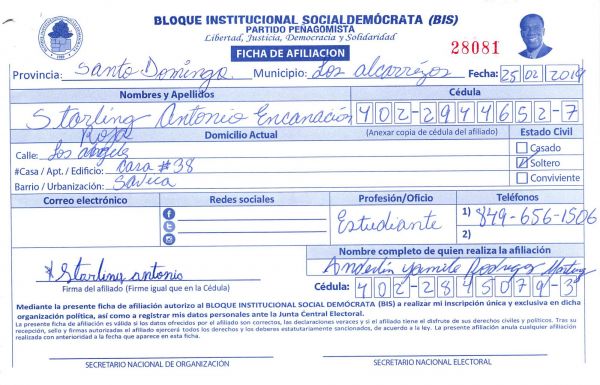 BLOQUE INSTITUCIONAL SOCIALDEMÓCRATA (BIS)
PARTIDO PEÑAGOMISTA
Libertad, Justicia, Democracia y Solidaridad
FICHA DE AFILIACION
28081
Provincia: Santo Domingo Municipio: Los alcarrizos Fecha: 25/02/2019
Nombres y Apellidos Cédula
Starling Antonio Encanación Rosa 402-2944652-7
Domicilio Actual (Anexar copia de cédula del afiliado) Estado Civil
Calle: Los angeles Casado
#Casa / Apt. / Edificio: Casa #38 Soltero
Barrio / Urbanización: Savica Conviviente
Correo electrónico Redes sociales Profesión/Oficio Teléfonos
Estudiante 1) 849-656-1506
2)
Nombre completo de quien realiza la afiliación
Starling antonio Yamile Rodriguez
Firma del afiliado (Firme igual que en la Cédula) Cédula: 402-2845079-3
Mediante la presente ficha de afiliación autorizo al BLOQUE INSTITUCIONAL SOCIAL DEMÓCRATA (BIS) a realizar mi inscripción única y exclusiva en dicha
organización política, así como a registrar mis datos personales ante la Junta Central Electoral.
La presente ficha de afiliación es válida si los datos ofrecidos por el afiliado son correctos, las declaraciones veraces y si el afiliado tiene el disfrute de sus derechos civiles y políticos. Tras su
recepción, sello y firmas autorizadas el afiliado ejercerá todos los derechos y los deberes estatutariamente sancionados, de acuerdo a la ley. La presente ficha anula cualquier afiliación
realizada con anterioridad a la fecha que aparece en esta ficha.
SECRETARIO NACIONAL DE ORGANIZACIÓN SECRETARIO NACIONAL ELECTORAL